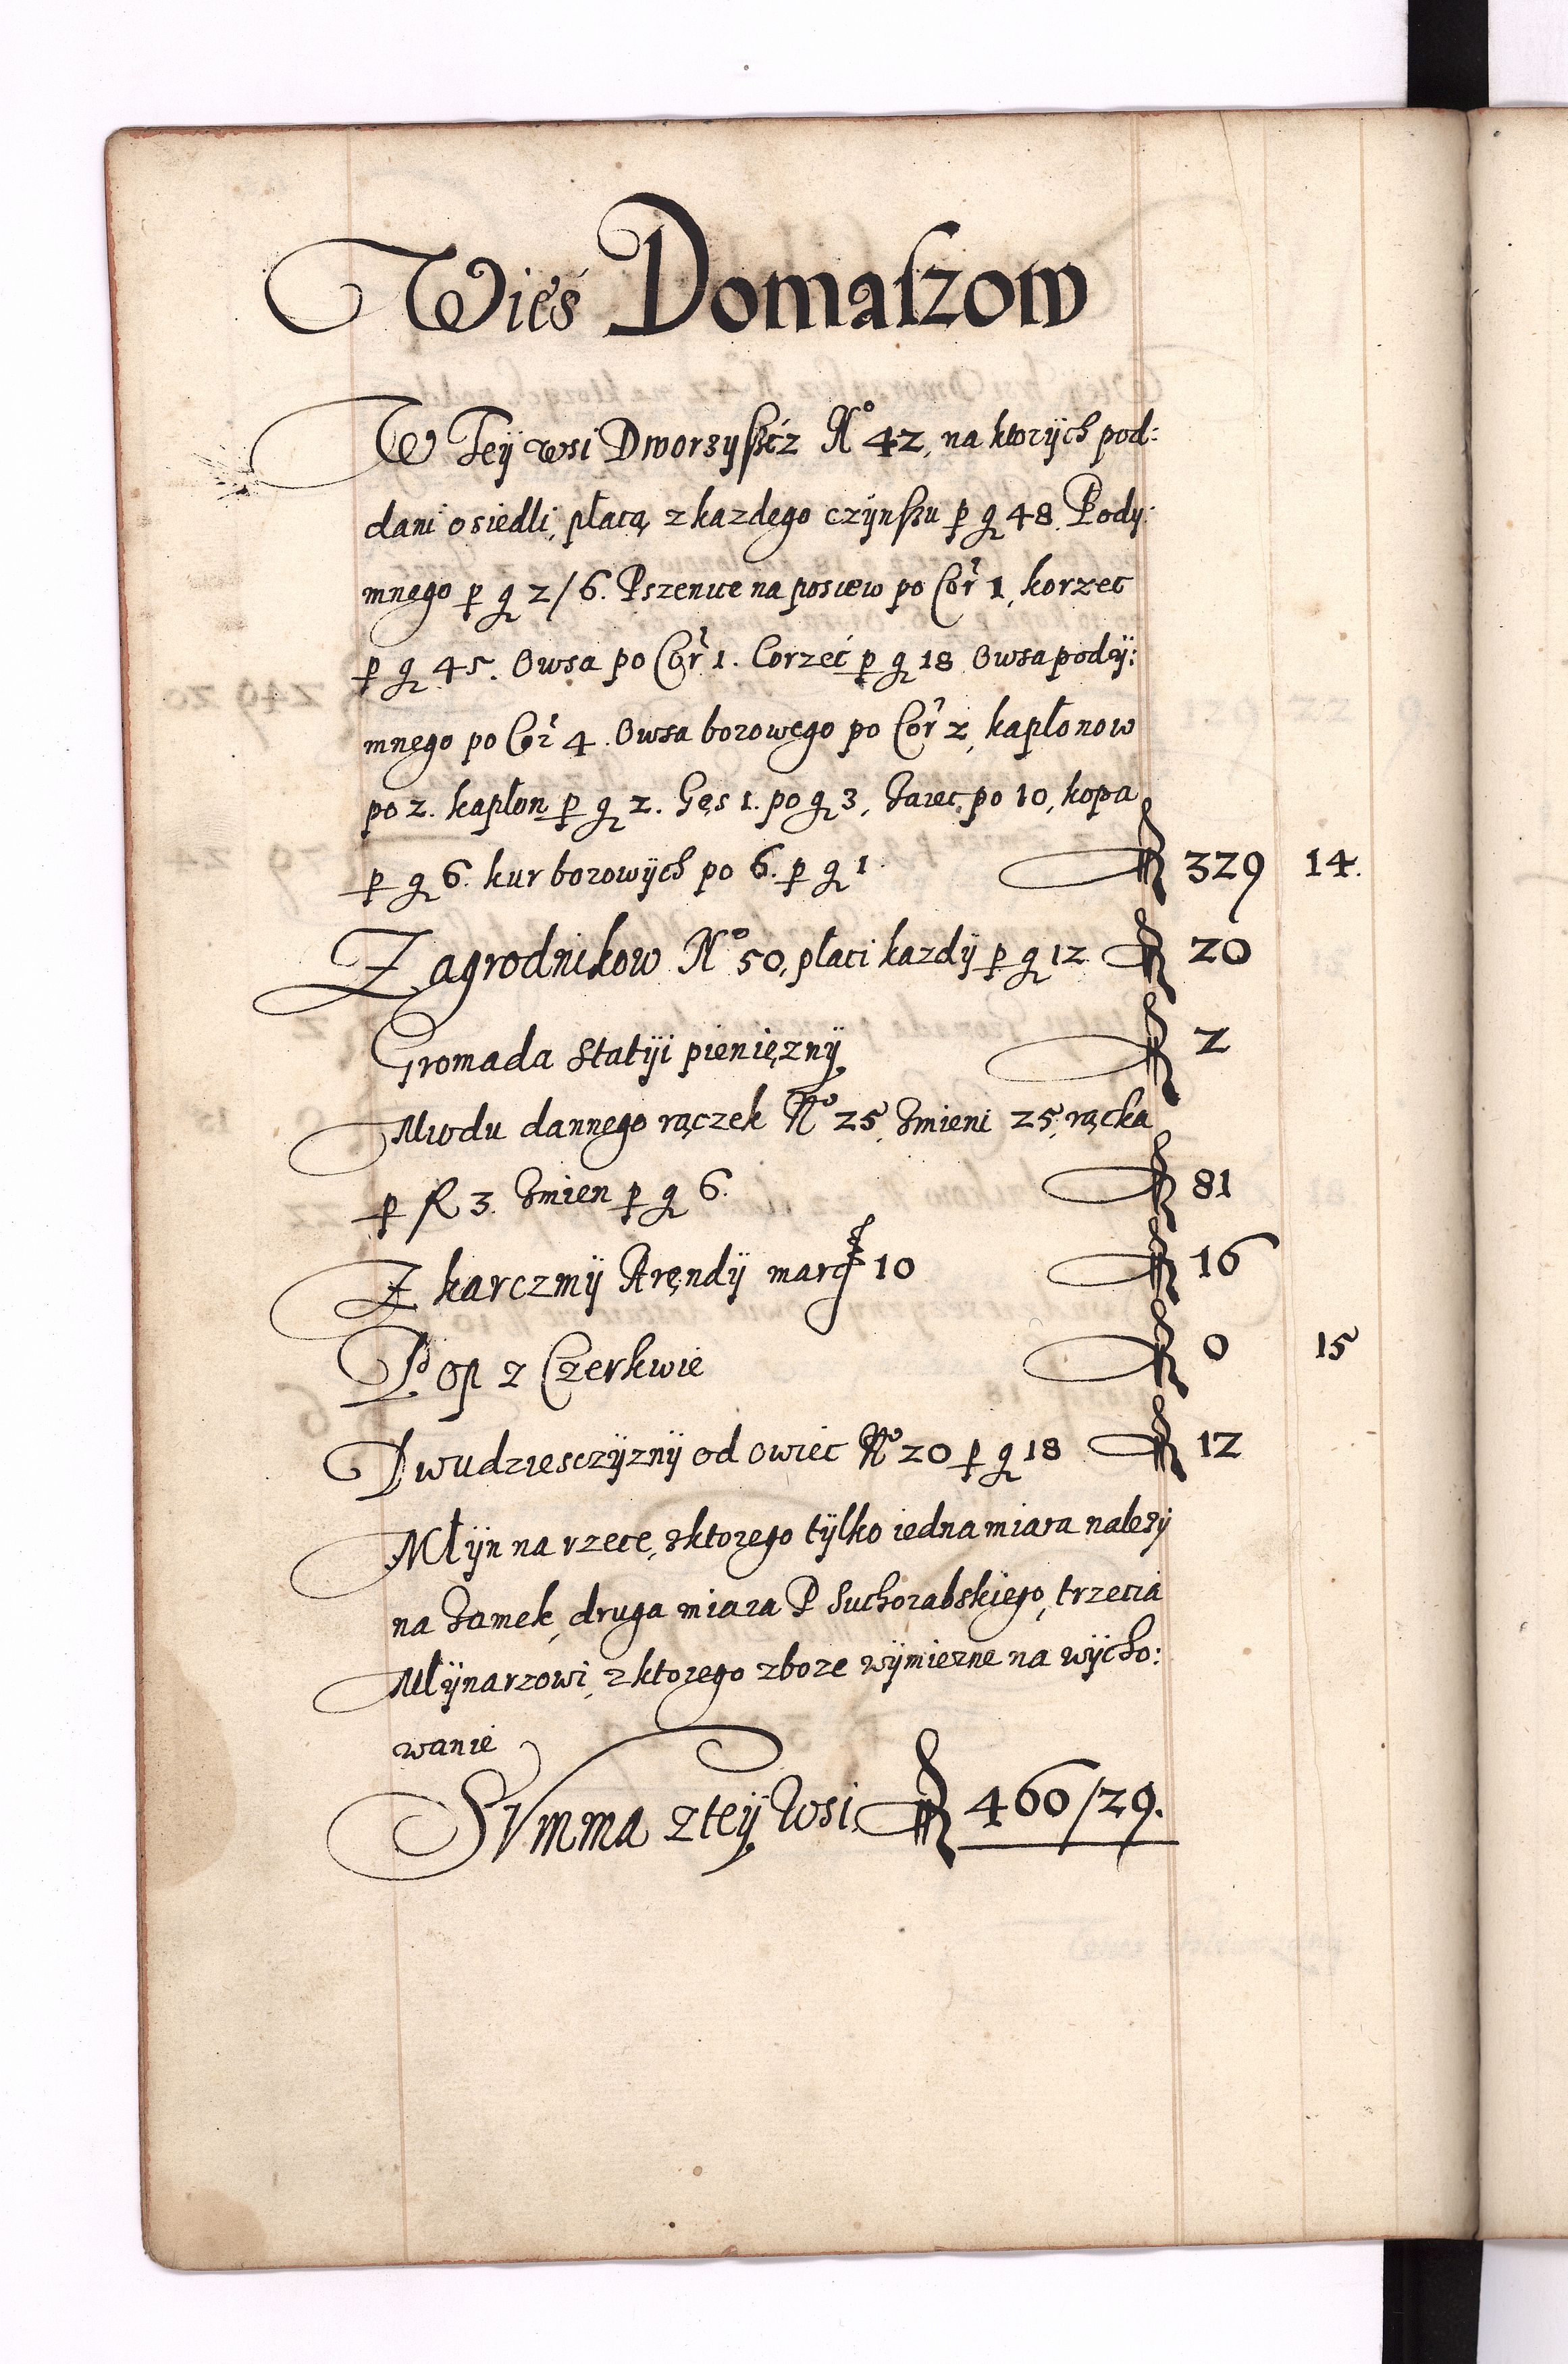 Wieś Domaſzow
W Teÿ wsi Dworzyſzcz No 42, na ktorÿch pod:
dani osiedli, płacą z kazdego czÿnſzu p g 48 Pody:
mnego p g 2/6. Pszenice na posiew po Cor 1, korzec
p g 45. Owsa po Cor 1. Corzec p g 18 Owsa podÿ:
mnego po Cor 4. Owsa borowego po Cor 2, kapłonow
po 2. kapłon p g 2. Gęs 1. po g 3, Jaiec po 10, kopa
p g 6. kur borowÿch po 6. p g 1 ſł 329 14.
Zagrodnikow No 50, płaci kazdÿ p g 12 ſł 20
Gromada Statÿi pieniężnÿ ſł 2
Miodu dannego rączek No 25, Zmieni 25, rącka
p fl 3. Zmien p g 6. ſł 81
Z karczmÿ Aręndÿ marc 10 ſł 16
Pop z Czerkwie ſł 0 15
Dwudziesczÿznÿ od owiec No 20 p g 18 ſł 12
Młÿn na rzece, z ktorego tÿlko iedna miara nalezÿ
na Zamek, druga miara P Suchorabskiego, trzecia
Młÿnarzowi, z ktorego zboze wÿmierne na wÿcho:
wanie
Summa z teÿ Wsi ſł 460/29.